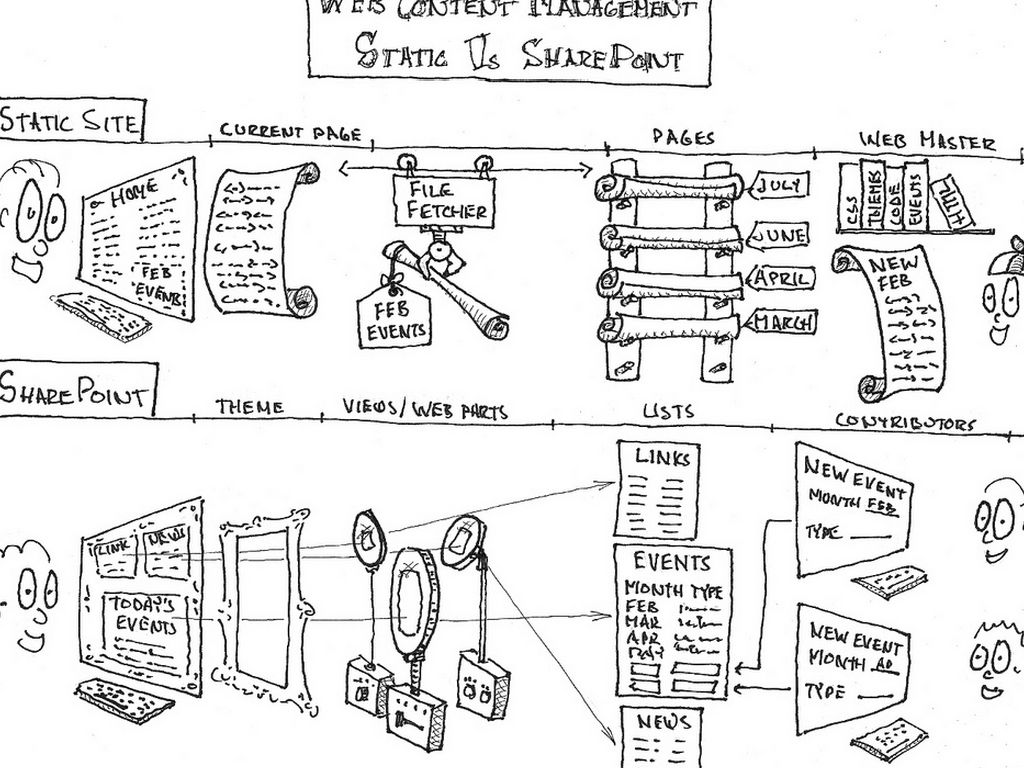 WEB CONTENT MANAGEMENT
STATIC VS SHAREPOINT
STATIC SITE
CURRENT PAGE
PAGES
WEB MASTER
HOME
FEB
EVENTS
FILE
FETCHER
FEB
EVENTS
JULY
JUNE
APRIL
MARCH
CSS
THEMES
CODE
EVENTS
HTML
NEW
FEB
SHAREPOINT
THEME
VIEWS/WEB PARTS
LISTS
CONTRIBUTORS
LINK
NEWS
TODAY'S
EVENTS
LINKS
EVENTS
MONTH TYPE
FEB
MAR
APR
MAY
NEWS
NEW EVENT
MONTH FEB
TYPE
NEW EVENT
MONTH
TYPE